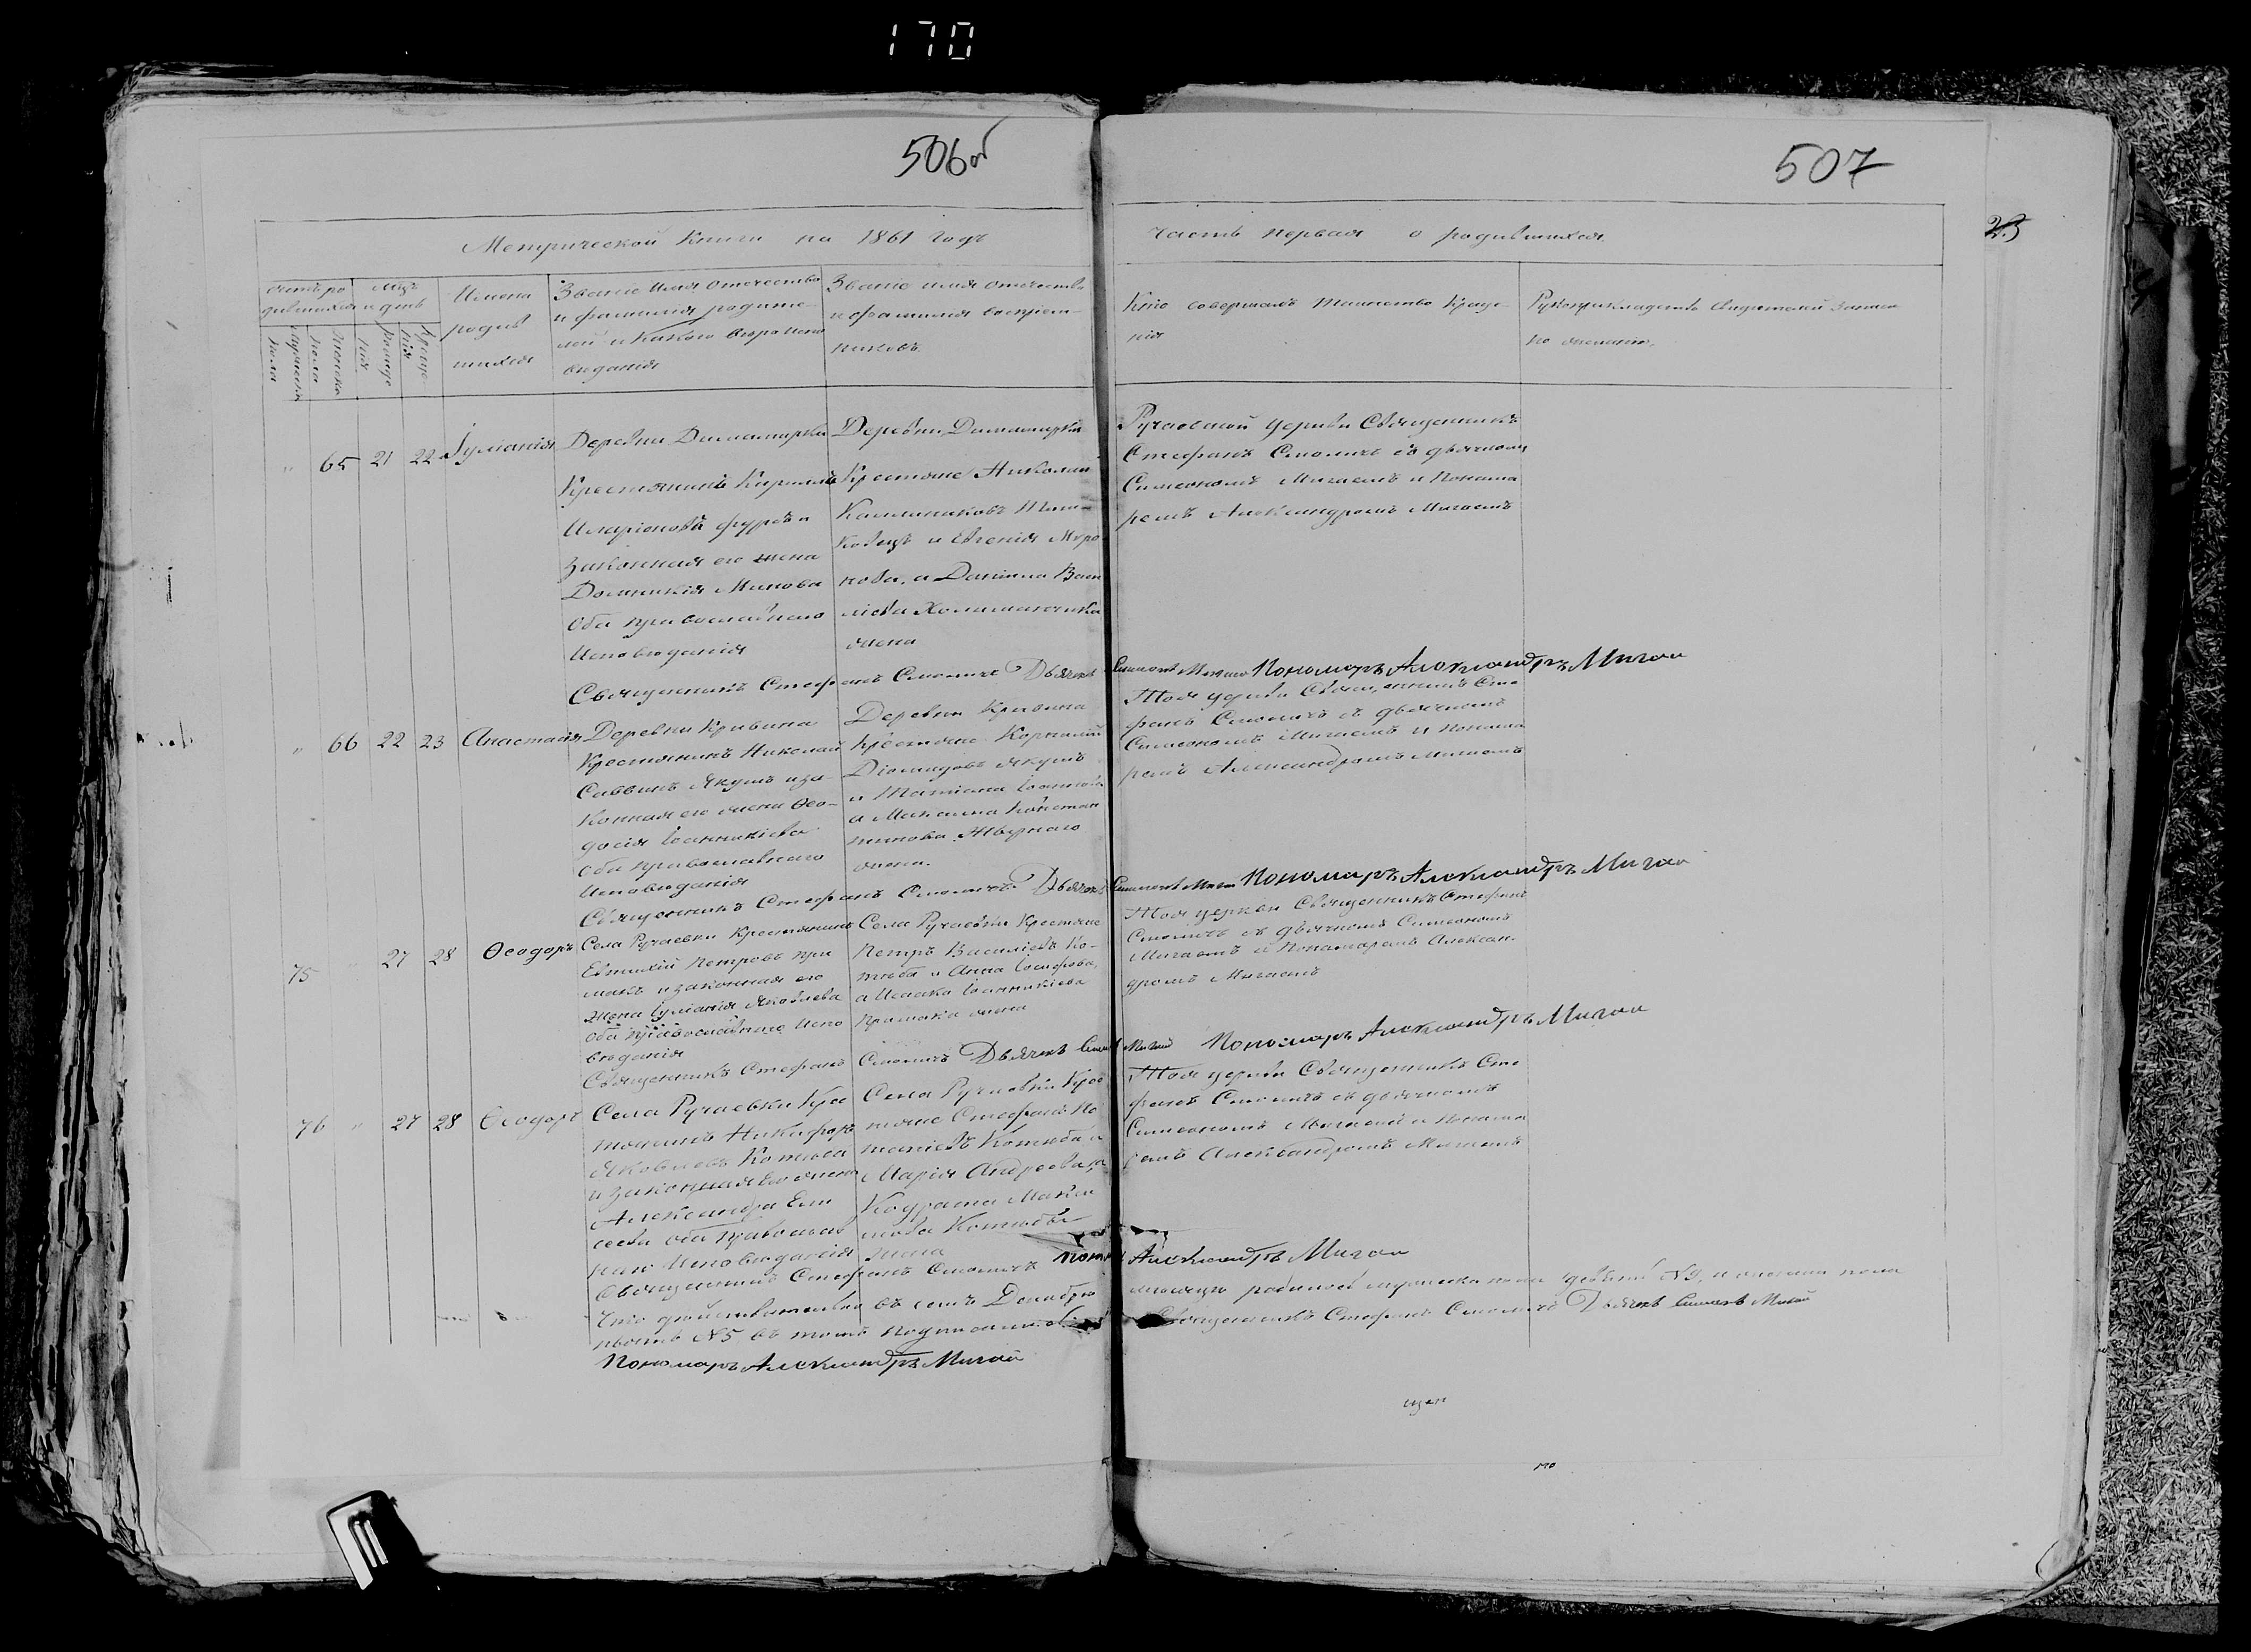 170
506об
507
23
Метрической Книги на 1861 годъ
часть первая о родившихся.
Счетъ ро
дившихся
Мужеска
пола
Женска
пола
Мцъ
и день
Рожде
нія
Креще
нія
Имена
родив
шихся
Званіе имя отчество
и фамилія родите-
лей и какого вѣроиспо
вѣданія
Званіе имя отчество
и фамилія воспріем-
никовъ.
Кто совершалъ таинство креще-
нія
Рукоприкладство свидетелей записи
по желанію.
" 65 21 22 Іуліанія
Деревни
Крестьянинъ Кириллъ
Иларіоновъ
законная его жена
Домникія Минова
оба православнаго
исповѣданія
Деревни
Крестьяне Николай
Каллиниковъ
и Евгенія Миро
нова, а Даніила Васи
ліева
жена
Ручаевской церкви Священникъ
Стефанъ Смоличъ съ дьячкомъ
Симеономъ Мигаемъ и Понама
ремъ Александромъ Мигаемъ
Священникъ Стефанъ Смоличъ Дьячекъ Симеонъ Мигай Пономарь Александръ Мигай
" 66 22 23 Анастасія
Деревни Кривина
Крестьянинъ Николай
Саввинъ Якушъ и за-
конная его жена Ѳео-
досія Іоанникіева
оба православнаго
исповѣданія
Деревни Кривина
Крестьяне Корнилій
Діомидовъ Якушъ
и Татіана Іоаннова
а Михаила Констан
тинова
жена.
Тойя церкви Священникъ Сте
фанъ Смоличъ съ дьячкомъ
Симеономъ Мигаемъ и Понама
ремъ Александромъ Мигаемъ
Священникъ Стефанъ Смоличъ Дьячекъ Симеонъ Мигай Пономарь Александръ Мигай
75 " 27 28 Ѳеодоръ
Села Ручаевки Крестьянинъ
Евтихій Петровъ При
макъ и законная его
жена Іуліанія Яковлева
оба православнаго испо
вѣданія
Села Ручаевки Крестьяне
Петръ Василіевъ Ко-
тюба и Анна Іосифова,
а Исаака Іоанникіева
Примака жена
Тойя церкви Священникъ Стефанъ
Смоличъ съ дьячкомъ Симеономъ
Мигаемъ и Понамаремъ Алексан-
дромъ Мигаемъ
Священникъ Стефанъ Смоличъ Дьячекъ Мигай Пономарь Александръ Мигай
76 " 27 28 Ѳеодоръ
Села Ручаевки Кре
стьянинъ Никифоръ
Яковлевъ Котюба
и законная его жена
Александра Ели
сеева оба православ
наго исповѣданія
Села Ручаевки Крес
тьяне Стефанъ По
тапіевъ Котюба и
Марія Андреева, а
Кодрата Макси
мова Котюбы
жена
Тойя церкви Священникъ Сте
фанъ Смоличъ съ дьячкомъ
Симеономъ Мигаемъ и Понама
ремъ Александромъ Мигаемъ
Священникъ Стефанъ Смоличъ Александръ Мигай
Что действительно въ семъ Декабрѣ месяце родилось мужеска пола девять №9, и женска пола
пять №5 въ томъ подписомъ Священникъ Стефанъ Смоличъ Дьячекъ Симеонъ Мигай
Пономарь Александръ Мигай
170